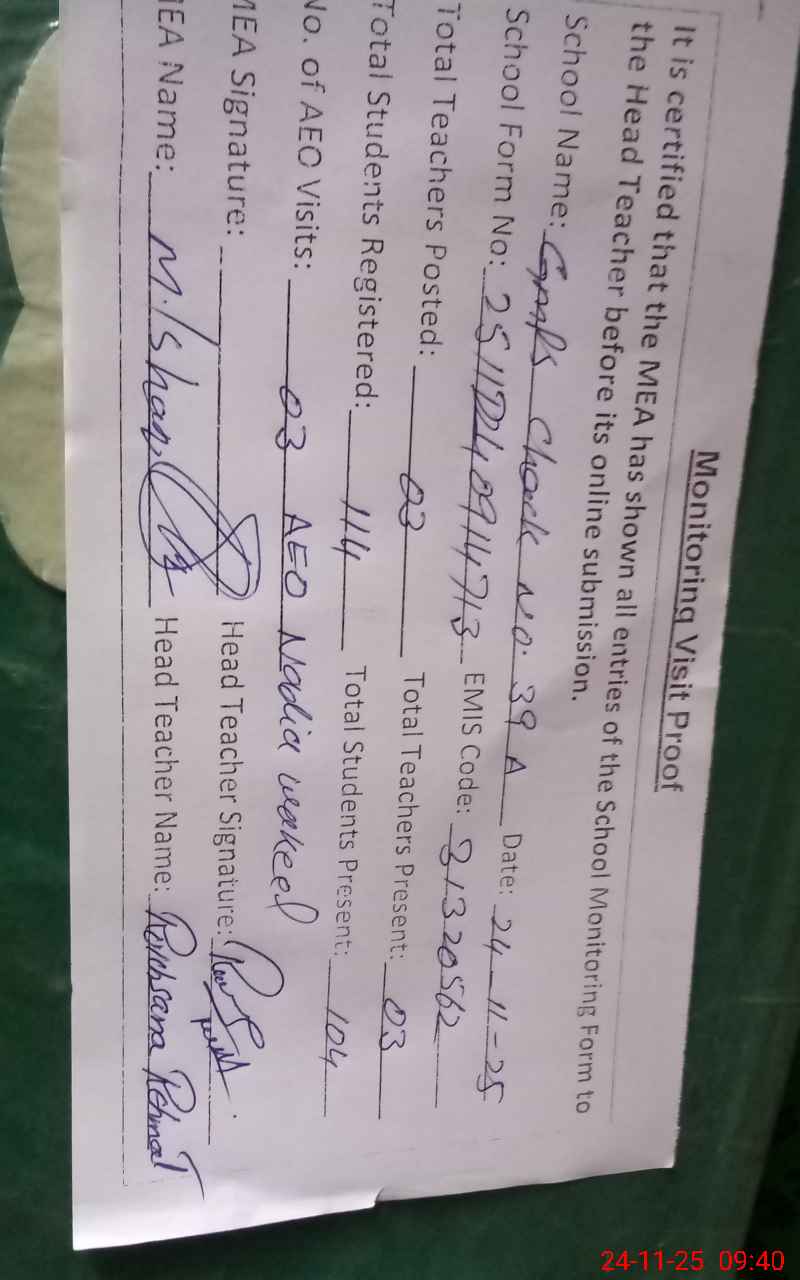 Monitoring Visit Proof
It is certified that the MEA has shown all entries of the School Monitoring Form to
the Head Teacher before its online submission.
School Name: GMPS Chack No. 39 A Date: 24-11-25
School Form No: 2511D240914713 EMIS Code: 31320562
Total Teachers Posted: 03 Total Teachers Present: 03
Total Students Registered: 114 Total Students Present: 104
No. of AEO Visits: 03 AEO Nadia wakeel
MEA Signature: Head Teacher Signature:
MEA Name: M. Ishaq Head Teacher Name: Rehmat
24-11-25 09:40